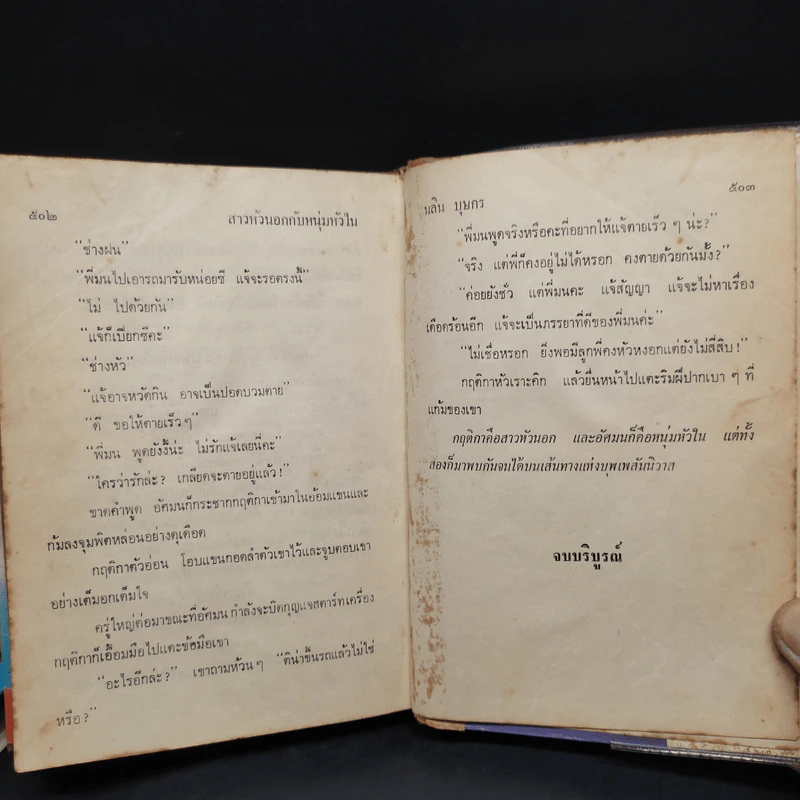 ๕๐๒
สาวหัวนอกกับหนุ่มหัวใน
“ช่างฝน”
“พี่มนไปเอารถมารับหน่อยซี แจ้จะรอตรงนี้”
“ไม่ ไปด้วยกัน”
“แจ้ก็เปียกซีคะ”
“ช่างหัว”
“แจ้อาจหวัดกิน อาจเป็นปอดบวมตาย”
“ดี ขอให้ตายเร็วๆ”
“พี่มน พูดยังงี้น่ะ ไม่รักแจ้เลยนี่คะ”
“ใครว่ารักล่ะ? เกลียดจะตายอยู่แล้ว!”
ขาดคำพูด อัศมนก็กระชากกฤติกาเข้ามาในอ้อมแขนและ
ก้มลงจุมพิตหล่อนอย่างดุเดือด
กฤติกาตัวอ่อน โอบแขนกอดลำตัวเขาไว้และจูบตอบเขา
อย่างเต็มอกเต็มใจ
ครู่ใหญ่ต่อมาขณะที่อัศมน กำลังจะบิดกุญแจสตาร์ทเครื่อง
กฤติกาก็เอื้อมมือไปแตะข้อมือเขา
“อะไรอีกล่ะ?” เขาถามห้วนๆ “ติน่าขึ้นรถแล้วไม่ใช่
หรือ?”
นลิน บุษกร
๕๐๓
“พี่มนพูดจริงหรือคะที่อยากให้แจ้ตายเร็ว ๆ น่ะ?”
“จริง แต่พี่ก็คงอยู่ไม่ได้หรอก คงตายด้วยกันมั้ง?”
“ค่อยยังชั่ว แต่พี่มนคะ แจ้สัญญา แจ้จะไม่หาเรื่อง
เดือดร้อนอีก แจ้จะเป็นภรรยาที่ดีของพี่มนค่ะ”
“ไม่เชื่อหรอก ยิ่งพอมีลูกพี่คงหัวหงอกแต่ยังไม่สี่สิบ!”
กฤติกาหัวเราะคิก แล้วยื่นหน้าไปแตะริมฝีปากเบา ๆ ที่
แก้มของเขา
กฤติกาคือสาวหัวนอก และอัศมนก็คือหนุ่มหัวใน แต่ทั้ง
สองก็มาพบกันจนได้บนเส้นทางแห่งบุพเพสันนิวาส
จบบริบูรณ์